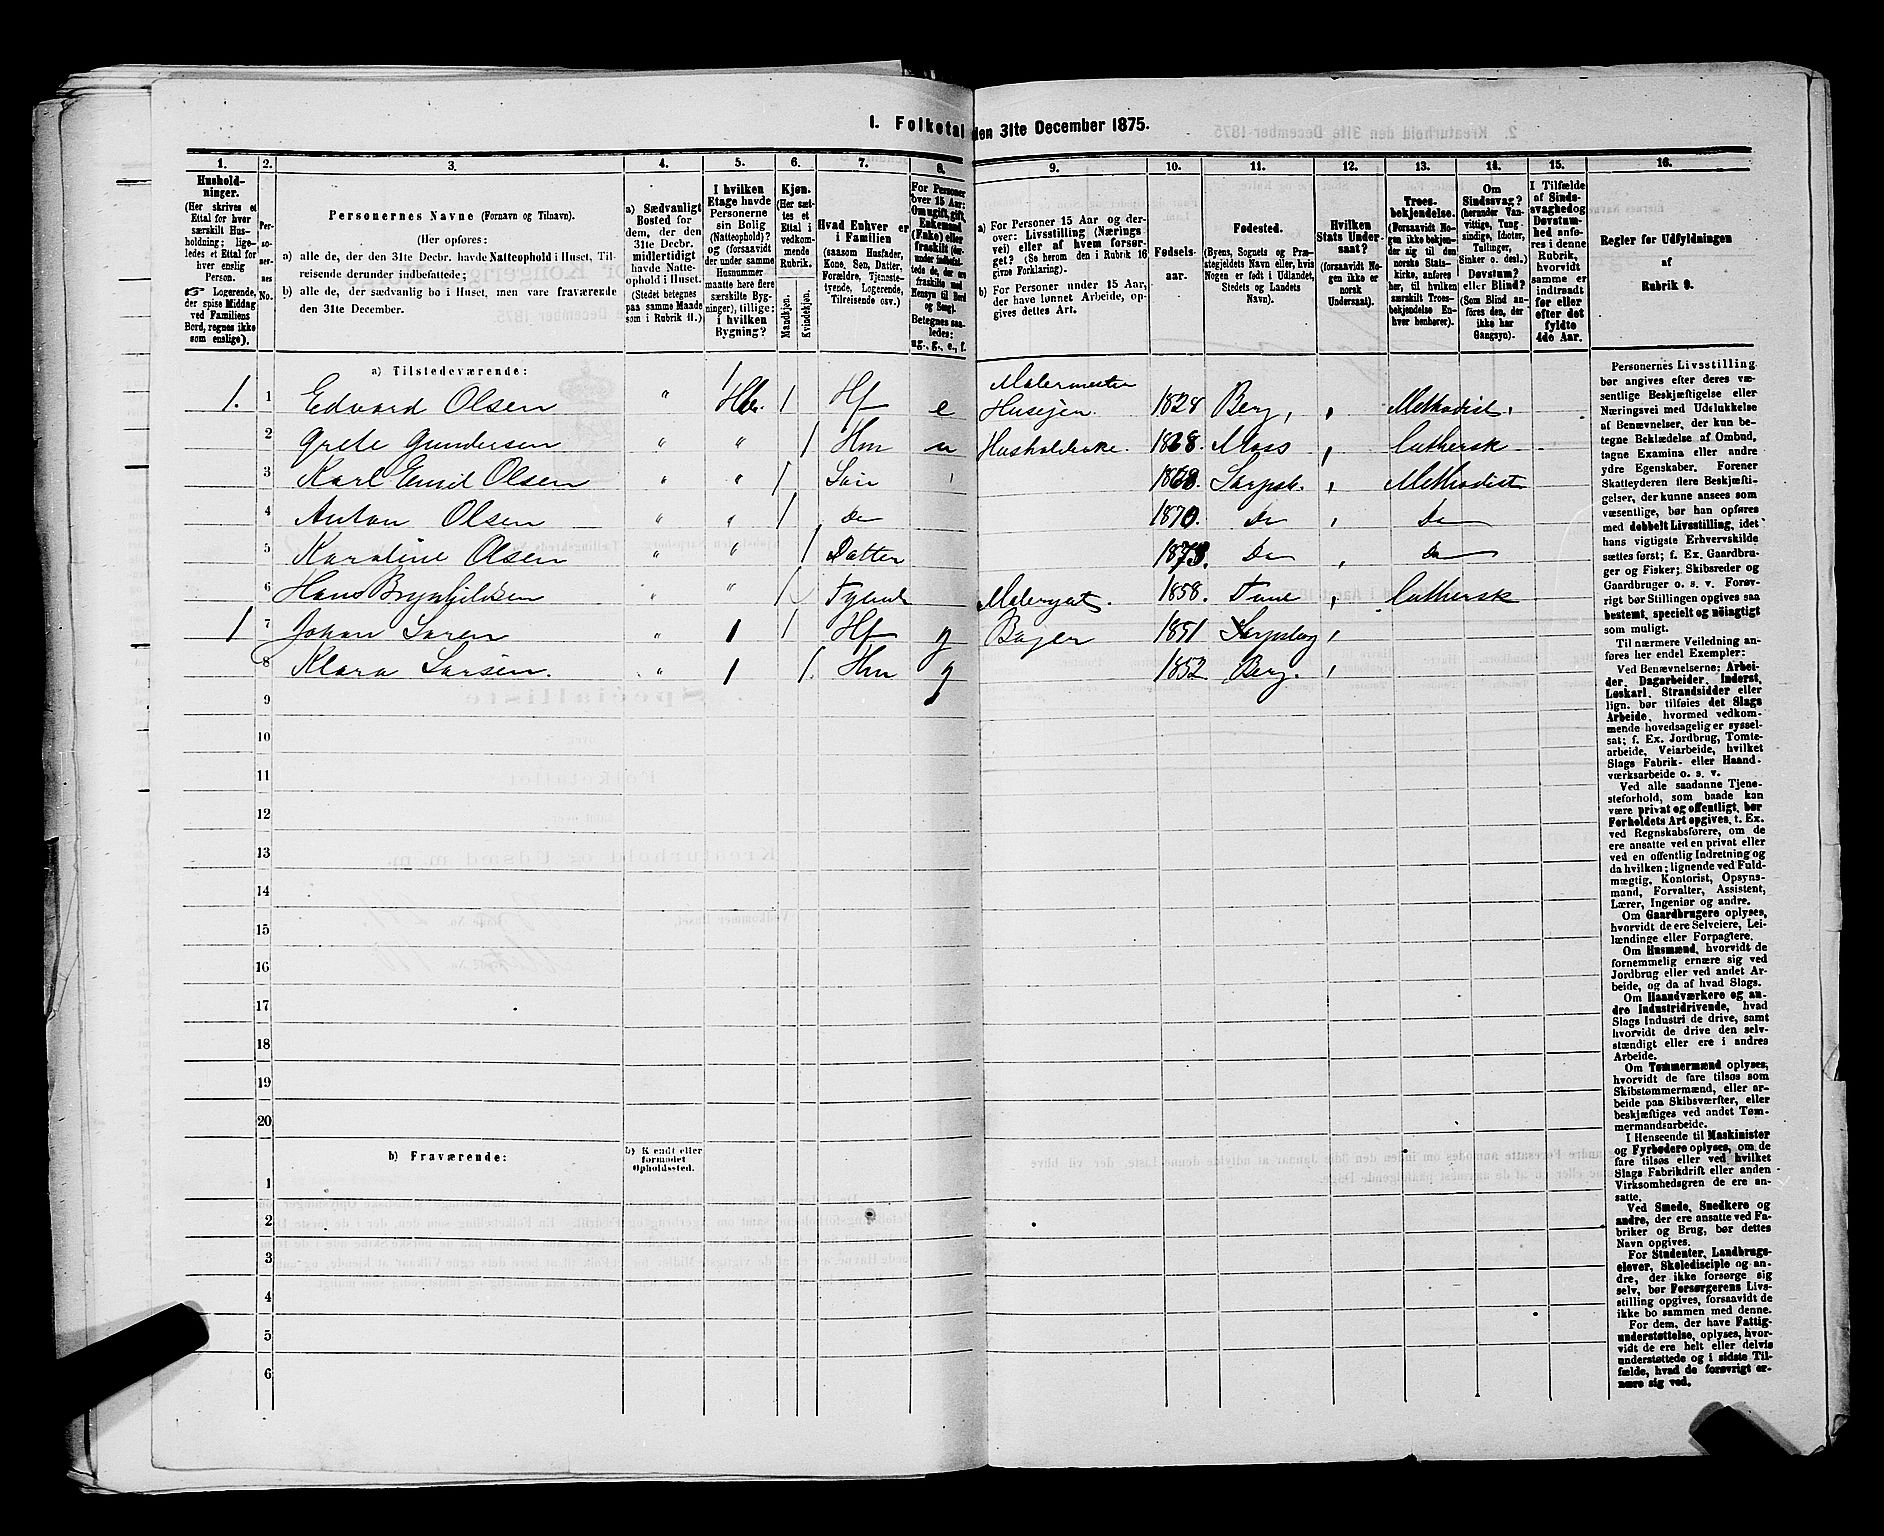 1. Folketal den 31te December 1875.
1. 2. 3. 4. 5. 6. 7. 8. 9. 10. 11. 12. 13. 14. 15. 16.
Hushold-
ninger.
(Her skrives et
Ettal for hver
særskilt Hus-
holdning; lige-
ledes et Ettal for
hver enslig
Person.
☞ Logerende,
der spise Middag
ved Familiens
Bord, regnes ikke
som enslige).
Per-
so-
ner-
nes
No.
Personernes Navne (Fornavn og Tilnavn).
(Her opføres:
a) alle de, der den 31te Decbr. havde Natteophold i Huset, Til-
reisende derunder indbefattede;
b) alle de, der sædvanlig bo i Huset, men vare fraværende
den 31te December.
a) Sædvanligt
Bosted for
dem, der den
31te Decbr.
midlertidigt
havde Natte-
ophold i Huset.
(Stedet betegnes
paa samme Maade
som i Rubrik 11.)
I hvilken
Etage havde
Personerne
sin Bolig
(Natteophold)?
og (forsaavidt
der under samme
Husnummer
maatte høre flere
særskilte Byg-
ninger), tillige:
i hvilken
Bygning?
Kjøn.
(Her sæt-
tes et
Ettal i
vedkom-
mende
Rubrik.
Mandkjøn.
Kvindekjøn.
Hvad Enhver er
i Familien
(saasom Husfader,
Kone, Søn, Datter,
Forældre, Tjeneste-
tyende, Logerende,
Tilreisende osv.)
For Personer
over 15 Aar:
Om ugift, gift,
Enkemand
(Enke) eller
fraskilt
Betegnes saa-
ledes:
ug., g., e., f.
a) For Personer 15 Aar og der-
over: Livsstilling (Nærings-
vei) eller af hvem forsør-
get? (Se herom den i Rubrik 16
givne Forklaring).
b) For Personer under 15 Aar,
der have lønnet Arbeide, op-
gives dettes Art.
Fødsels-
aar.
Fødested.
(Byens, Sognets og Præ-
stegjeldets Navn eller, hvis
Nogen er født i Udlandet,
Stedets og Landets
Navn).
Hvilken
Stats Under-
saat?
(forsaavidt No-
gen ikke er
norsk
Undersaat).
Troes-
bekjendelse.
(Forsaavidt No-
gen ikke bekjen-
der sig til den
norske Stats-
kirke, anføres
her, til hvilken
særskilt Troes-
bekjendelse En-
hver henhører).
Om
Sindssvag?
(herunder Van-
vittige, Tung-
sindige, Idioter,
Tullinger,
Sinker o. desl.)
Døvstum?
eller Blind?
(Som Blind an-
føres den, der
ikke har
Gangsyn).
I Tilfælde
af Sinds-
svaghed og
Døvstum-
hed anfø-
res i denne
Rubrik,
hvorvidt
samme er
indtraadt
før eller
efter det
fyldte
4de Aar.
Regler for Udfyldningen
af
Rubrik 9.
a) Tilstedeværende:
1. 1 Edvard Olsen " 1 1 Hf e Malermester Husejer. 1828 Berg, , Methodist.
2 Grete Gundersen " " 1 Hm u 1868. Moss , Luthersk
3 Karl Emil Olsen " " 1 Søn 1868. Sarpsb. , Methodist
4 Anton Olsen " " 1 Do 1870. Do , Do
5 Karoline Olsen " " 1 Datter 1873. Do , Do
6 Hans Brynhildsen " " 1 Tyende 1858. Tune , Luthersk
1 7 Johan " 1 1 Hf g Bager 1851 Sarpsborg ,
8 Klara " 1 1. Hm g 1852 Berg. ,
9
10
11
12
13
14
15
16
17
18
19
20
b) Fraværende:
b) Kjendt eller
formodet
Opholdssted.
1
2
3
4
5
6
Personernes Livsstilling
bør angives efter deres væ-
sentlige Beskjæftigelse eller
Næringsvei med Udelukkelse
af Benævnelser, der kun be-
tegne Beklædelse af Ombud,
tagne Examina eller andre
ydre Egenskaber. Forener
Skatteyderen flere Beskjæfti-
gelser, der kunne ansees som
væsentlige, bør han opføres
med dobbelt Livsstilling, idet
hans vigtigste Erhvervskilde
sættes først; f. Ex. Gaardbru-
ger og Fisker; Skibsreder og
Gaardbruger o. s. v. Forøv-
rigt bør Stillingen opgives saa
bestemt, specielt og nøiagtigt
som muligt.
Til nærmere Veiledning an-
føres her endel Exempler:
Ved Benævnelserne: Arbei-
der, Dagarbeider, Inderst,
Løskarl, Strandsidder eller
lign. bør tilføies det Slags
Arbeide, hvormed vedkom-
mende hovedsagelig er syssel-
sat; f. Ex. Jordbrug, Tomte-
arbeide, Veiarbeide, hvilket
Slags Fabrik- eller Haand-
værksarbeide o. s. v.
Ved alle saadanne Tjene-
steforhold, som baade kan
være privat og offentligt, bør
Forholdets Art opgives, t. Ex.
ved Regnskabsførere, om de
ere ansatte ved en privat eller
ved en offentlig Indretning og
da hvilken; lignende ved Fuld-
mægtig, Kontorist, Opsyns-
mand, Forvalter, Assistent,
Lærer, Ingeniør og andre.
Om Gaardbrugere oplyses,
hvorvidt de ere Selveiere, Lei-
lændinge eller Forpagtere.
Om Husmænd, hvorvidt de
fornemmelig ernære sig ved
Jordbrug eller ved andet Ar-
beide, og da af hvad Slags.
Om Haandværkere og an-
dre Industridrivende, hvad
Slags Industri de drive, samt
hvorvidt de drive den selv-
stændigt eller ere i andres
Arbeide.
Om Tømmermænd oplyses,
hvorvidt de fare tilsøs som
Skibstømmermænd, eller ar-
beide paa Skibsværfter, eller
beskjæftiges ved andet Tøm-
mermandsarbeide.
I Henseende til Maskinister
og Fyrbødere oplyses, om de
fare tilsøs eller ved hvilket
Slags Fabrikdrift eller anden
Virksomhedsgren de ere an-
satte.
Ved Smede, Snedkere og
andre, der ere ansatte ved Fa-
briker og Brug, bør dettes
Navn opgives.
For Studenter, Landbrugs-
elever, Skoledisciple og an-
dre, der ikke forsørge sig
selv, bør Forsørgerens Livs-
stilling opgives, forsaavidt de
ikke bo sammen med denne.
For dem, der have Fattig-
understøttelse, oplyses, hvor-
vidt de ere helt eller delvis
understøttede og i sidste Til-
fælde, hvad de forøvrigt er-
nære sig ved.